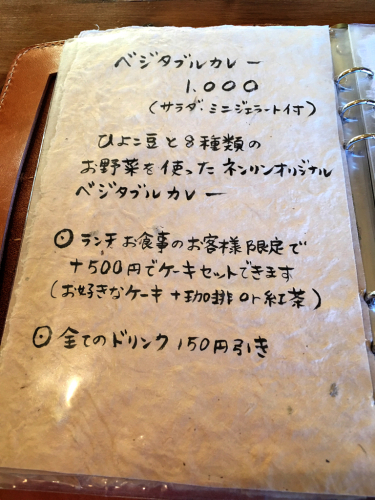 ベジタブルカレー
1,000
(サラダ・ミニジェラート付)
ひよこ豆と8種類の
お野菜を使ったネンリンオリジナル
ベジタブルカレー
⦿ランチお食事のお客様限定で
+500円でケーキセットできます
(お好きなケーキ+珈琲or紅茶)
⦿全てのドリンク150円引き